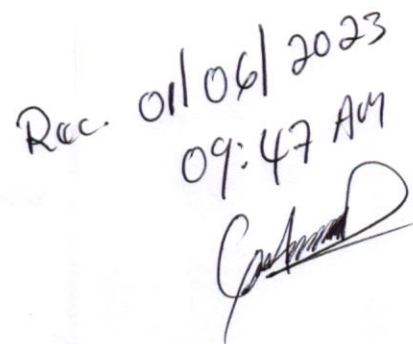 Rec. 01/06/2023
09:47 AM